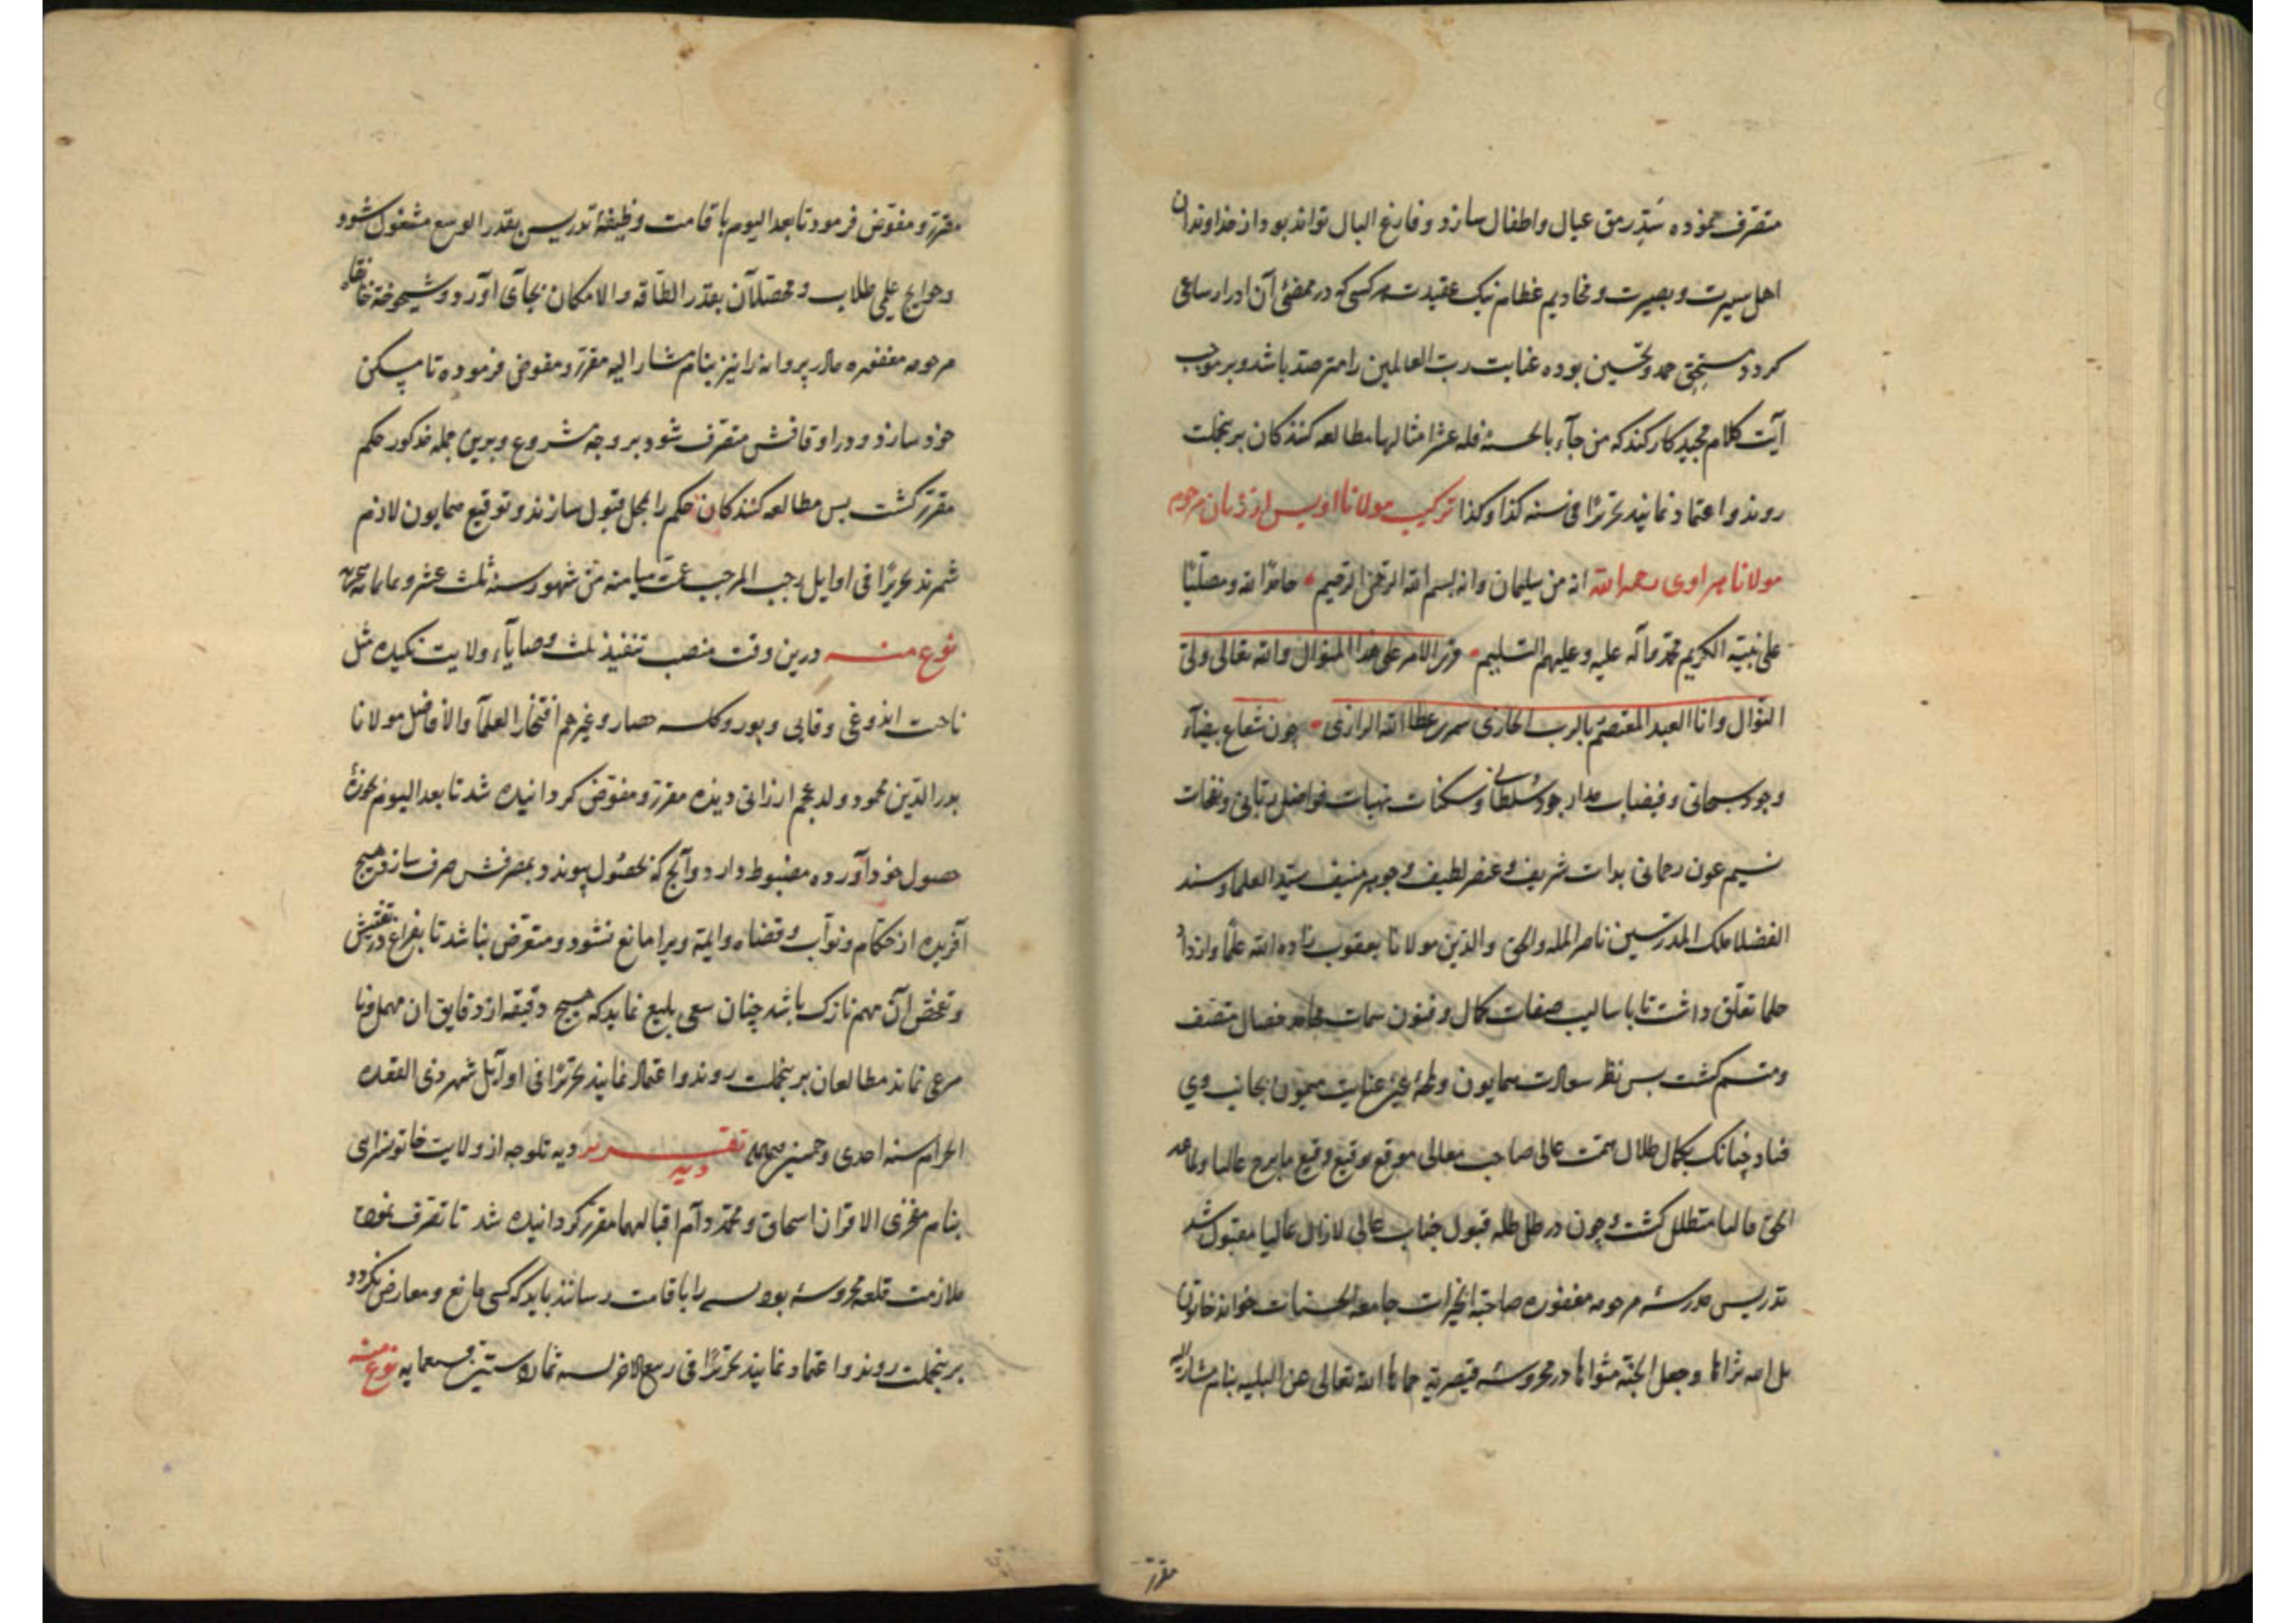 متصرف نموده سد رمق عیال واطفال سازد وفارغ البال تواند بود از خداوندان
اهل سیرت وبصیرت ومخادیم عظام نیک عقیدت هر کسی که در ممضئ آن ادرار ساعی
کردد مستحق حمد وتحسین بوده عنایت رب العالمین را مترصد باشد وبر موجب
آیت کلام مجید کار کند که من جاء بالحسنة فله عشر امثالها مطالعه کنندکان برینجملت
روند واعتماد نمایند تحریرًا فی سنه کذا وکذا ترکیب مولانا اویس از زبان مرحوم
مولانا رحمه الله انه من سلیمان وانه بسم الله الرحمن الرحیم حامدًا لله ومصلّیًا
علی نبیّه الکریم محمّد وآله علیه وعلیهم التسلیم الامر علی هذا المنوال والله تعالی ولیّ
النوال وانا العبد المعتصم بالرب عطا الله الرازی چون شعاع بیضآء
وجود سبحانی وفیضبات مدار جود سلطانی وسکنات فواضل ونفحات
نسیم عون رحمانی بذات شریف وعنصر لطیف وجوهر منیف سیّد العلما وسند
الفضلا ملک المدرسین ناصر المله والحق والدّین مولانا یعقوب زاده الله علمًا وازداد
حلما تعلّق داشت تا باسالیب صفات کمال وفنون سمات خصال متصف
ومتسم کشت پس نظر سعادت همایون ولمحهٔ عین عنایت میمون بجانب وی
فتاد چنانک بکمال ظلال همت عالی صاحب معالی موقع توقیع وقیع عالیا
الحق متظلل کشت وچون در ظل ظله قبول جناب عالی لازال عالیا مقبول شد
تدریس مدرسهٔ مرحومه مغفوره صاحبة الخیرات جامعة الحسنات خواند خاتون
بل الله ثراها وجعل الجنّة مثواها در محروسهٔ قیصریّه حماها الله تعالی عن البلیه بنام مشار الیه
مقرر
مقرّر ومفوّض فرمود تا بعد الیوم باقامت وظیفهٔ تدریس بقدر الوسع مشغول شود
وحوایج طلاب ومحصلان بقدر الطاقه والامکان بجآی آورد وشیخوخة خانقاه
مرحومه مغفوره مادر پروانه را نیز بنام مشار الیه مقرّر ومفوض فرموده تا مسکن
خود سازد ودر اوقافش متصرف شود بر وجه مشروع وبرین جمله مذکور حکم
مقرّر کشت پس مطالعه کنندکان حکم را قبول سازند وتوقیع همایون لازم
شمرند تحریرًا فی اوایل رجب المرجب عمّت میامنه من شهور سنه ثلث عشر وثمانمائه هجریه
نوع منه درین وقت منصب تنفیذ ثلث وصایاء ولایت نکیده مثل
ناحت وقایی حصار وغیرهم افتخار العلمآ والافاضل مولانا
بدر الدّین محمود ولد عجم ارزانی دیده مقرّر ومفوّض کردانیده شد تا بعد الیوم بحوزهٔ
حصول خود آورده مضبوط دارد وآنج که بحصول پیوندد بمصرفش صرف سازد هیچ
آفریده از حکّام ونوّاب وقضاه وایمّه ویرا مانع نشود ومتعرّض نباشد تا بفراغ در تفتیش
وتفحّص آن مهم نازک باشد چنان سعی بلیغ نماید که هیچ دقیقه از دقایق ان مهمل ونا
مرعی نماند مطالعان برینجملت روند واعتماد نمایند تحریرًا فی اوآیل شهر ذی القعده
الحرام سنه احدی وخمسین تقریر دیه دیه تلوجه از ولایت خاتونسرای
بنام مفخری الاقران اسحاق ومحمّد دآم اقبالهما مقرّر کردانیده شد تا تصرف نموده
ملازمت قلعه محروسهٔ را باقامت رسانند باید که کسی مانع ومعارض نکردد
برینجملت روند واعتماد نمایند تحریرًا فی ربیع الاخر سنه ثمان وستین وسبعمایه نوع منه